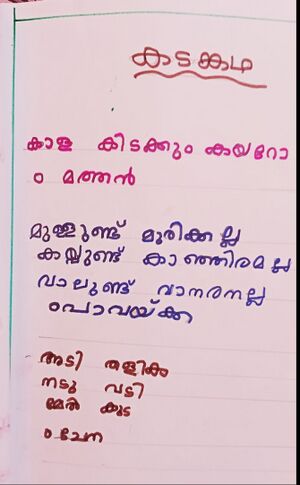 കടങ്കഥ
കാള കിടക്കും കയറോ
o മത്തൻ
മുള്ളുണ്ട് മുരിക്കല്ല
കയ്പ്പുണ്ട് കാഞ്ഞിരമല്ല
വാലുണ്ട് വാനരനല്ല
o പാവയ്ക്ക
അടി തളിക
നടു വടി
മേൽ കുട
o ചേന